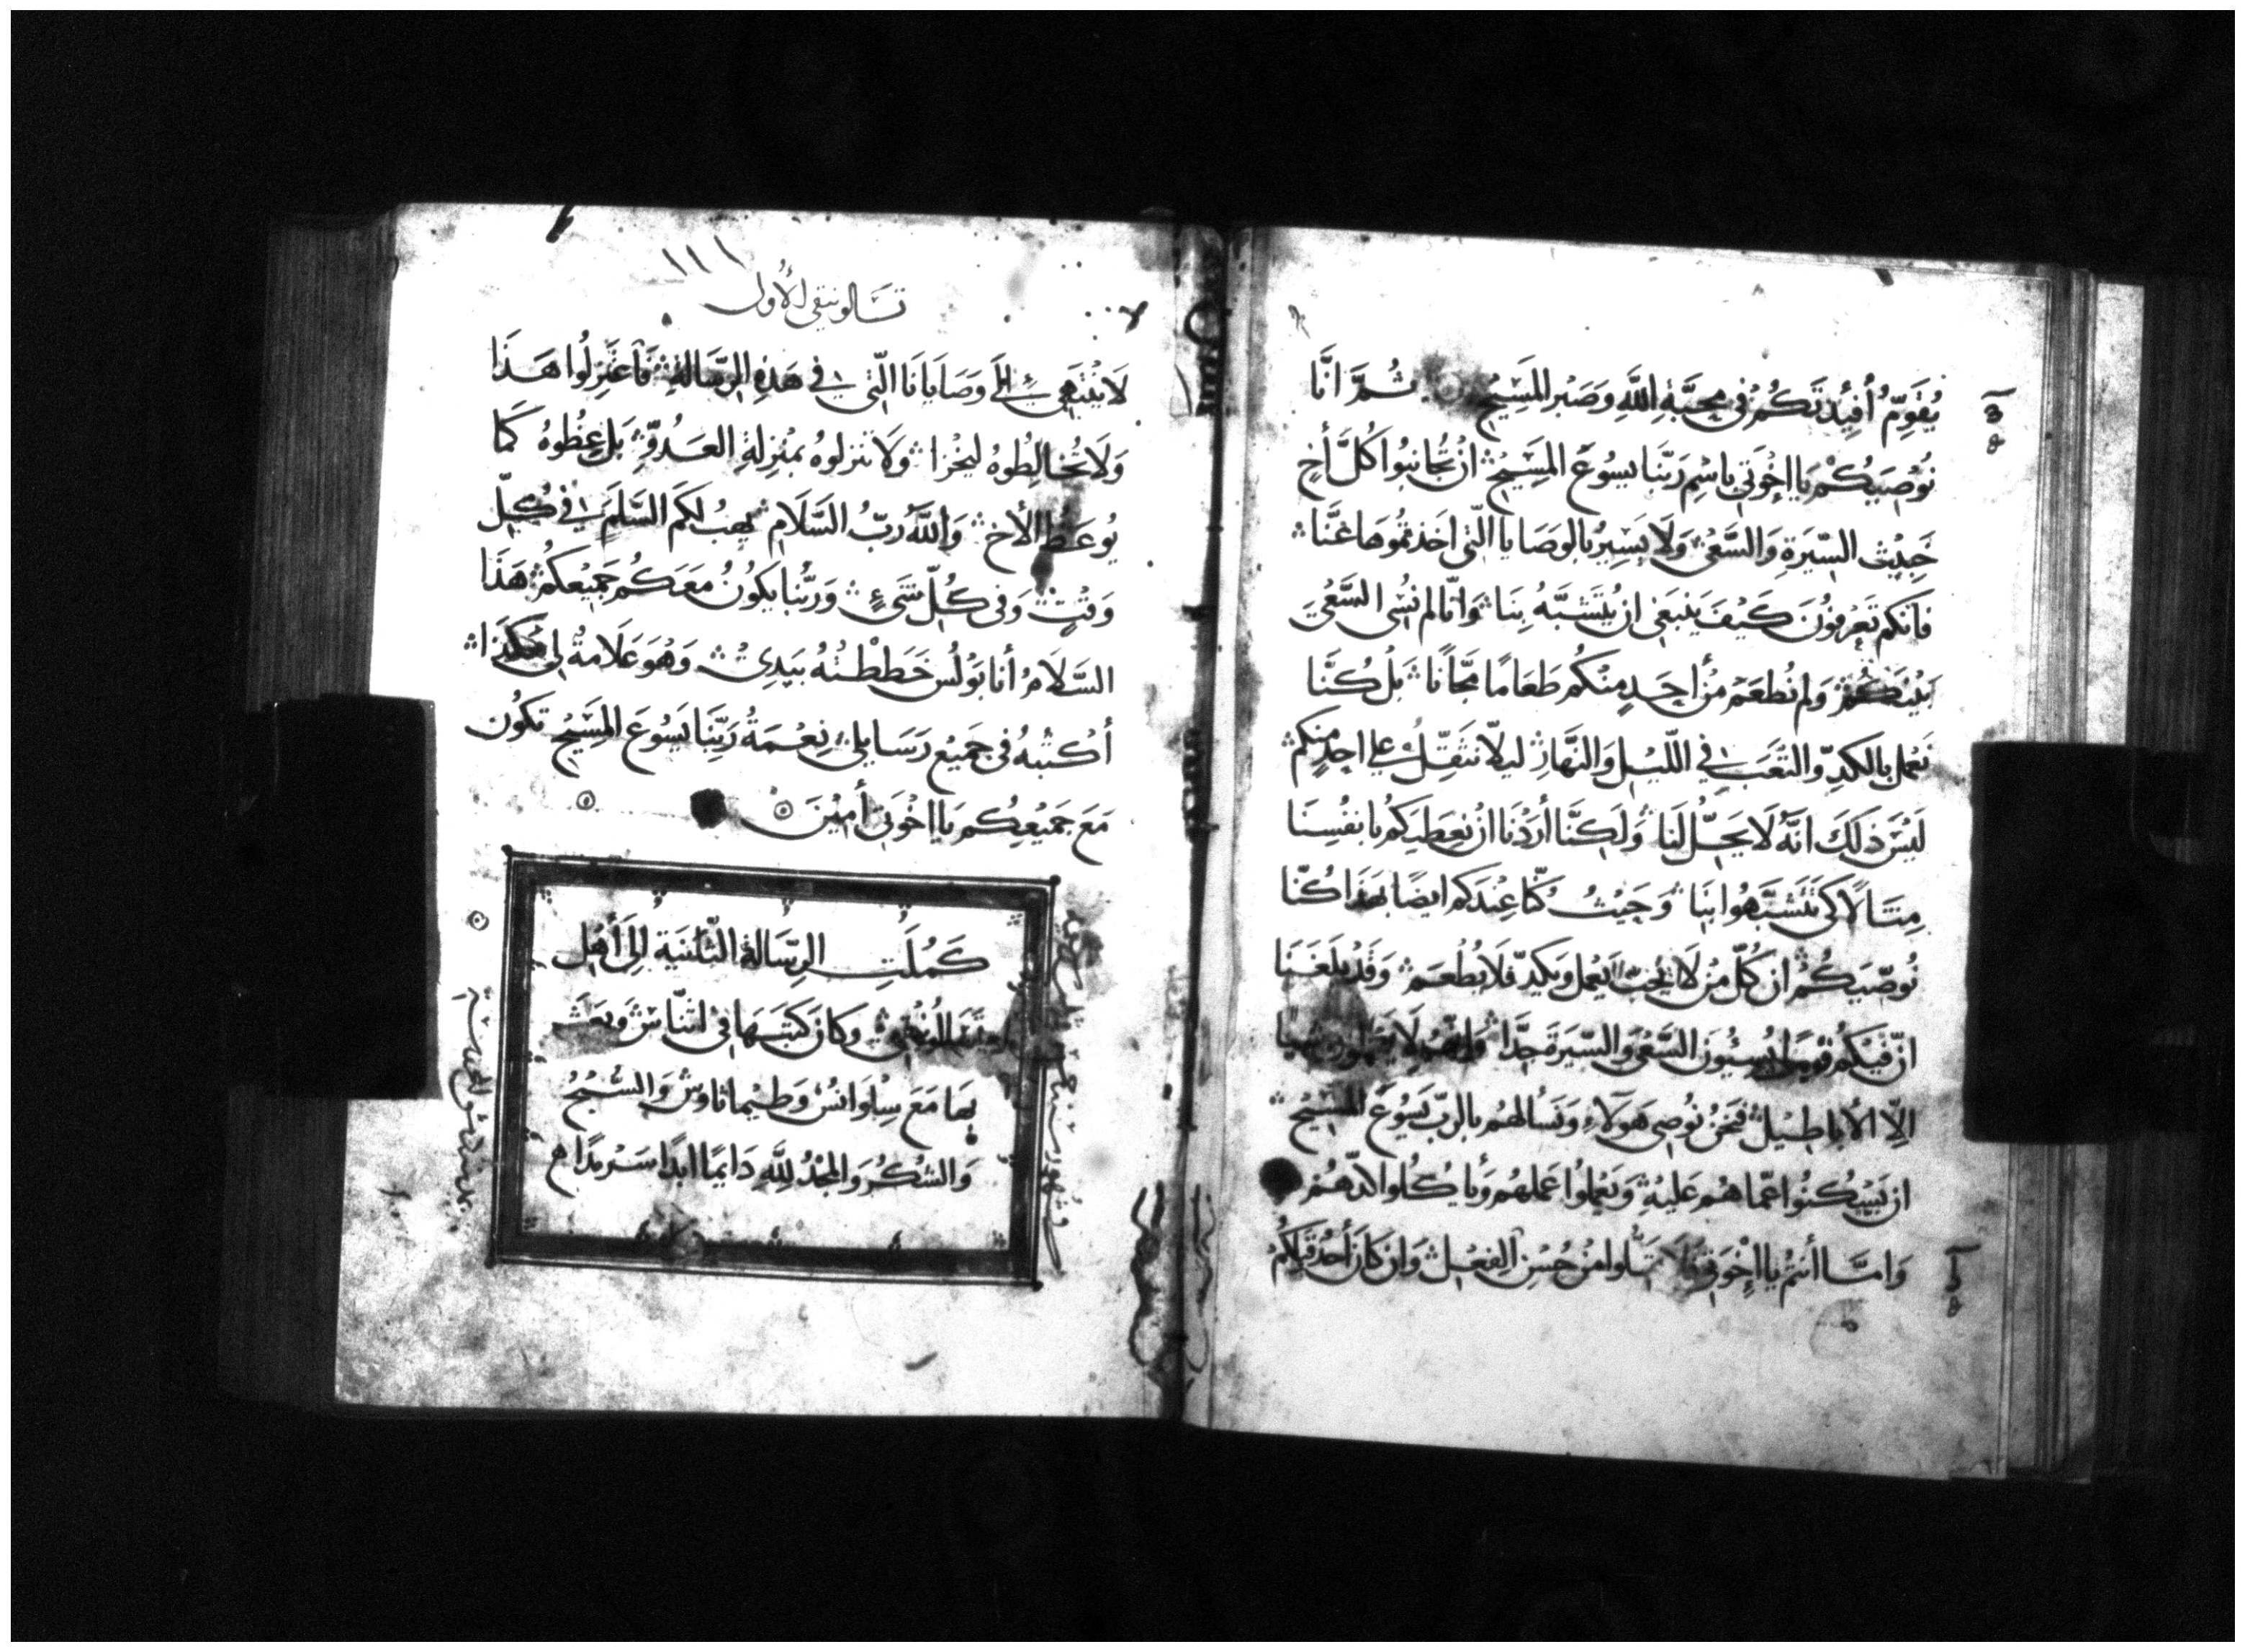 يُقَوِّمُ أَفْئِدَتَكُمْ فِي مَحَبَّةِ اللَّهِ وَصَبْرِ المَسِيْحِ ثُمَّ انَّا
نُوْصِيْكُمْ يَا اِخْوَتِي بِاسْمِ رَبِّنَا يسُوعَ المَسِيْحِ ان تُجَانِبُوا كُلَّ أخٍ
خَبِيْثِ السِّيْرَةِ وَالسَّعْيِ وَلَا يَسِيْرُ بِالوَصَايَا الَّتِي اخَذتمُوهَا عَنَّا
فَانّكم تَعْرِفُوْنَ كَيْفَ يَنْبَغِي ان يُتَشَبَّهُ بِنَا وَانَّا لم نُسِي السَّعْيَ
بَيْنَكُمْ وَلم نُطعَمْ مِنْ أحَدٍ مِنْكُم طَعَامًا مَجَّانًا بَلْ كُنَّا
نَعْمل بِالكَدِّ وَالتَعَبِ فِي اللَّيْلِ وَالنَّهَارِ لَيلَّا نثَقِّلَ عَلي احِدٍ مِنكم
لَيْسَ ذلِكَ انَّهُ لَا يَحِلُّ لَنَا وَلَكِنَّا أرَدْنَا انْ نُعطِيَكم بِانفُسِنَا
مِثَالًا كَي تَتَشَبَّهُوا بِنَا وَحَيْثُ كُنَّا عِنْدَكم ايضًا بِهَذَا كُنَّا
نُوصِّيَكُمْ ان كُلّ مَنْ لَا يُحِبّ ان يَعْمل وَيكدّ فَلَا يُطْعَم وَقَدْ بَلَغَنَا
انَّ فَيْكُم قَوْمًا يُسِيُون السَّعْي وَالسِّيَرة جِدًّا وَانّهم لَا يَعْمَلون شيًا
الِّا الأبَاطِيْل فَنَحْنُ نُوصِي هَولَاءِ وَنَسْألهُم بِالرَّبّ يَسُوْعَ المسِيْحِ
ان يَسْكُنُوا عَمَّا هُم عَلَيْهِ وَيَعْمَلُوا عَمَلهُم وَيَأكُلوا
وَامَّا أنتُم يا اِخْوَتِي فَلَا تمَلّوا مِنْ حُسْنِ الفِعْلِ وَان كَانَ أَحَدُ قِبَلَكُمْ
١١١
تسَالونيقي الأول
لَا يَنْتَهِي إلَى وَصَايَانَا الَّتِي فِي هَذِهِ الرِّسَالَةِ فَاعْتَزِلُوا هَذَا
وَلَا تُخَالِطُوهُ لِيَخْزَا وَلَا تنزلوهُ بمَنْزِلَةِ العَدُوِّ بَل عِظُوهُ كَمَا
يُوعَظ الأخ وَاللَّهُ رَبُّ السَّلَامِ يَهِبُ لكَم السَّلَمَ فِي كُلِّ
وَقْتٍ وَفي كُلّ شَيءٍ وَرَبُّنَا يَكُوْنُ مَعَكُم جَمِيْعكُمْ هَذَا
السَّلَامُ أنا بَوْلُسَ خَطَطْتُهُ بِيَدِي وَهُوَ عَلَامَةٌ لِي هَكَذَا
أَكْتُبهُ فِي جَمِيْعِ رَسَايلِي نِعْمَةُ رَبِّنَا يَسُوْعَ المَسِيْحِ تكُون
مَعَ جَمِيْعِكُم يَا اِخْوَتِي أَمِيْنَ
كَمُلَتِ الرِّسَالَة الثَّانِيَة اِلَي أهْلِ
تَسَالُونِيقِي وَكانَ كَتَبَهَا فِي اثنَاس وَبَعَثَ
بِهَا مَعَ سِلْوَانُس وَطِيْماثاوس وَالسُّبْحُ
وَالشُكْرُ وَالمَجْدُ لِلَّهِ دَايمًا ابَدًا سَرْمَدًا